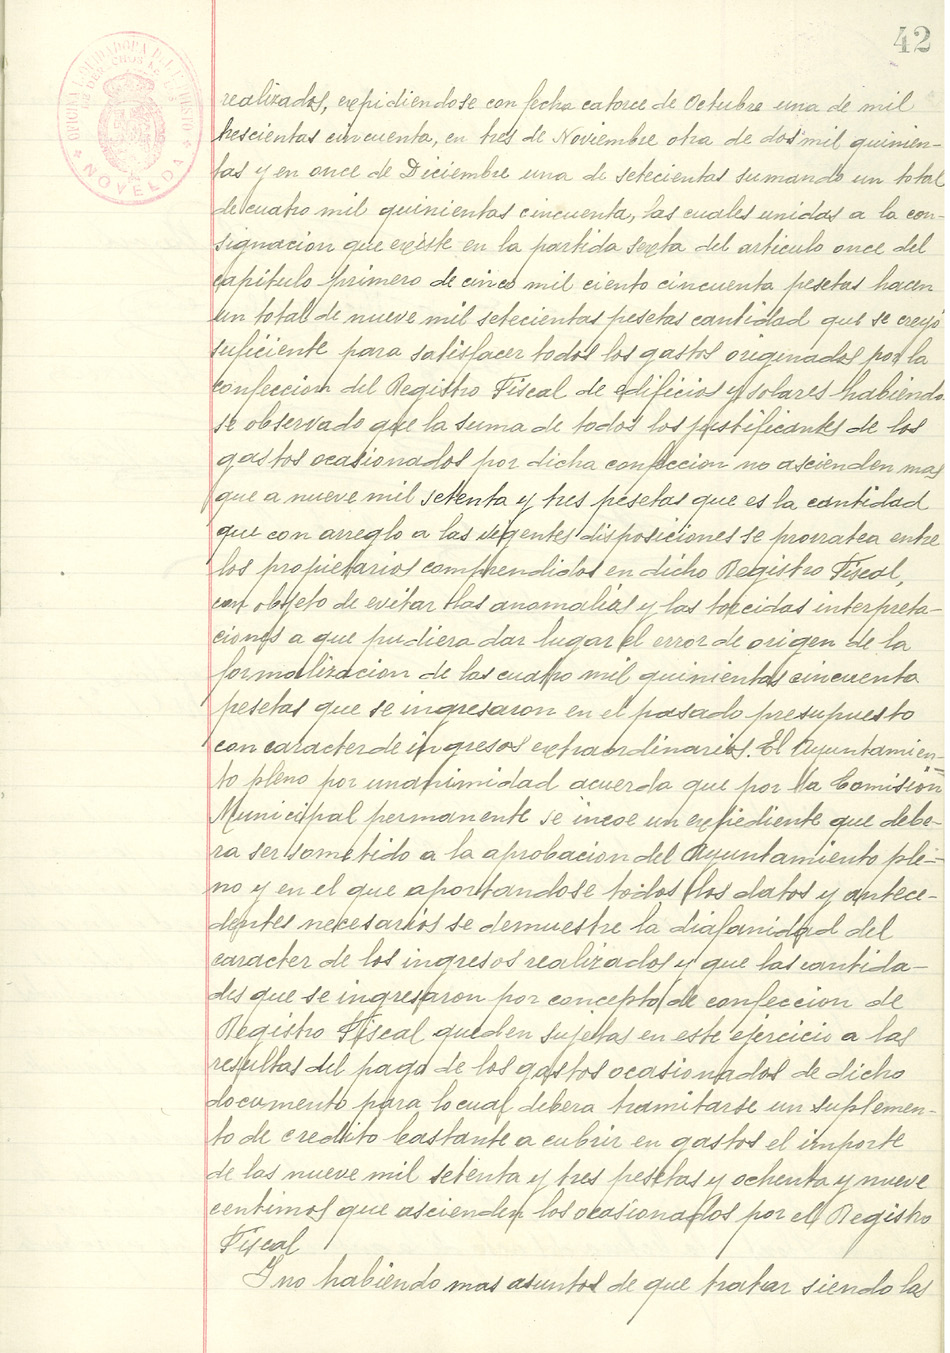 42
OFICINA LIQUIDADORA DEL
NOVELDA
realizados, expidiendose con fecha catorce de Octubre una de mil
trescientas cincuenta, en tres de Noviembre otra de dos mil quinien-
tas y en once de Diciembre una de setecientas sumando un total
de cuatro mil quinientas cincuenta, las cuales unidas a la con-
signacion que existe en la partida sexta del articulo once del
capitulo primero de cinco mil ciento cincuenta pesetas hacen
un total de nueve mil setecientas pesetas cantidad que se creyó
suficiente para satisfacer todos los gastos originados por la
confeccion del Registro Fiscal de edificios y solares habiendo
se observado que la suma de todos los justificantes de los
gastos ocasionados por dicha confeccion no ascienden mas
que a nueve mil setenta y tres pesetas que es la cantidad
que con arreglo a las vigentes disposiciones se prorratea entre
los propietarios comprendidos en dicho Registro Fiscal,
con objeto de evitar las anomalias y las torcidas interpreta-
ciones a que pudiera dar lugar el error de origen de la
formalizacion de las cuatro mil quinientas cincuenta
pesetas que se ingresaron en el pasado presupuesto
con caracter de ingresos extraordinarios. El Ayuntamien-
to pleno por unanimidad acuerda que por la Comisión
Municipal permanente se incoe un expediente que debe-
ra ser sometido a la aprobacion del Ayuntamiento ple-
no y en el que aportandose todos los datos y antece-
dentes necesarios se demuestre la diafanidad del
caracter de los ingresos realizados y que las cantida-
des que se ingresaron por concepto de confeccion de
Registro Fiscal queden sujetas en este ejercicio a las
resultas del pago de los gastos ocasionados de dicho
documento para lo cual debera tramitarse un suplemen-
to de credito bastante a cubrir en gastos el importe
de las nueve mil setenta y tres pesetas y ochenta y nueve
centimos que ascienden los ocasionados por el Registro
Fiscal
Y no habiendo mas asuntos de que tratar siendo las